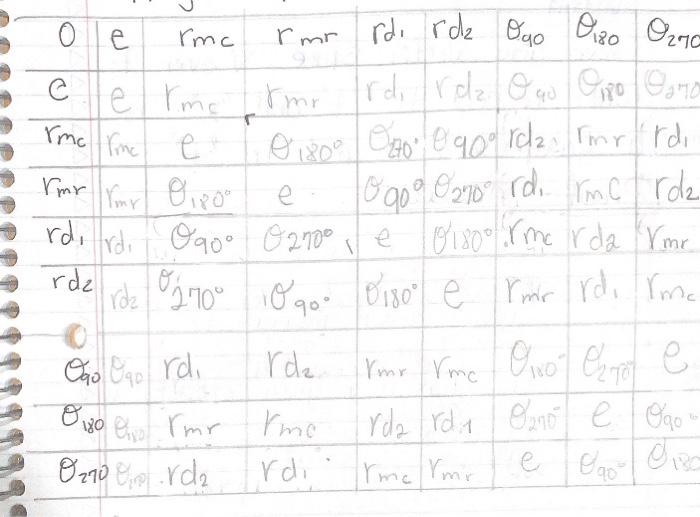 O e rmc rmr rd1 rd2 θ90 θ180 θ270
e e rmc rmr rd1 rd2 θ90 θ180 θ270
rmc rmc e θ180° θ270° θ90° rd2 rmr rd1
rmr rmr θ180° e θ90° θ270° rd1 rmc rd2
rd1 rd1 θ90° θ270° e θ180° rmc rd2 rmr
rd2 rd2 θ270° θ90° θ180° e rmr rd1 rmc
θ90 θ90 rd1 rd2 rmr rmc θ180° θ270° e
θ180 θ180 rmr rmc rd2 rd1 θ270° e θ90°
θ270 θ270 rd2 rd1 rmc rmr e θ90° θ180